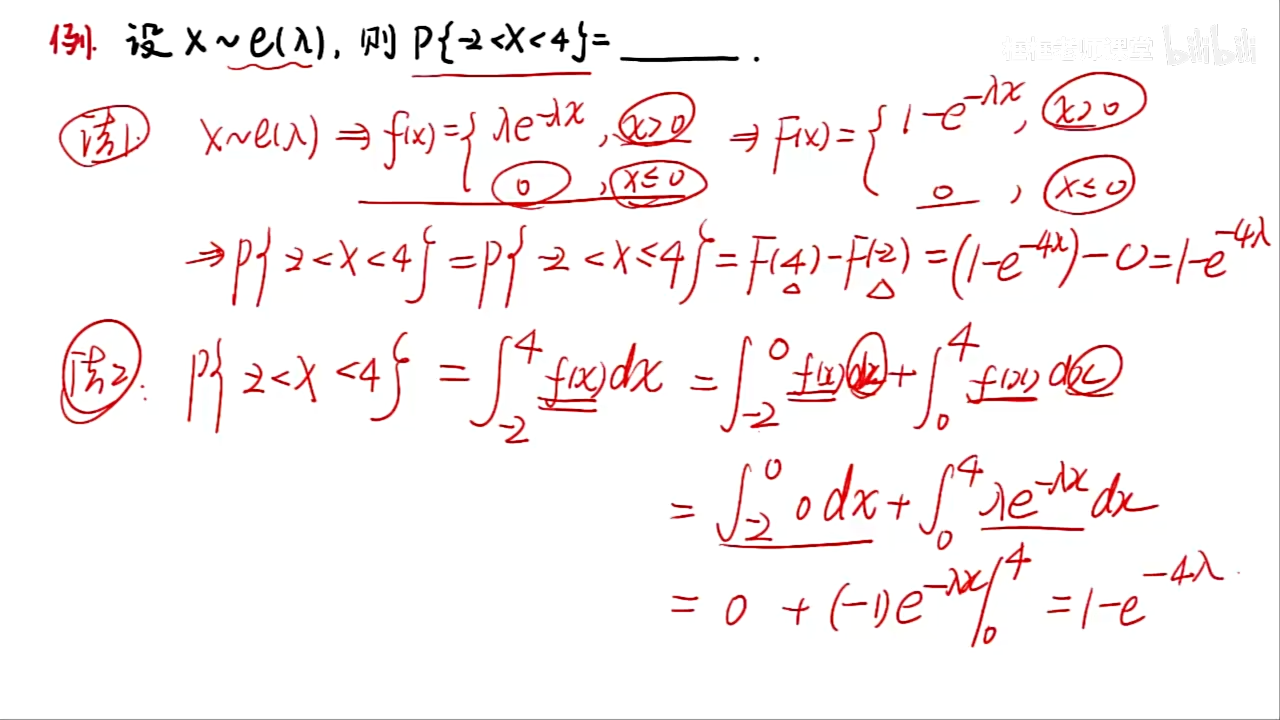 例. 设 X~e(λ), 则 P{-2<X<4}=______.
法1. X~e(λ) ⇒ f(x)={λe^{-λx}, x>0 ⇒ F(x)={1-e^{-λx}, x>0
0, x≤0 0, x≤0
⇒P{2<X<4}=P{-2<X≤4}=F(4)-F(-2)=(1-e^{-4λ})-0=1-e^{-4λ}
法2: P{2<X<4} = ∫_{-2}^{4} f(x)dx = ∫_{-2}^{0} f(x)dx + ∫_{0}^{4} f(x)dx
= ∫_{-2}^{0} 0dx + ∫_{0}^{4} λe^{-λx}dx
= 0 + (-1)e^{-λx}|_{0}^{4} = 1-e^{-4λ}
bilibili